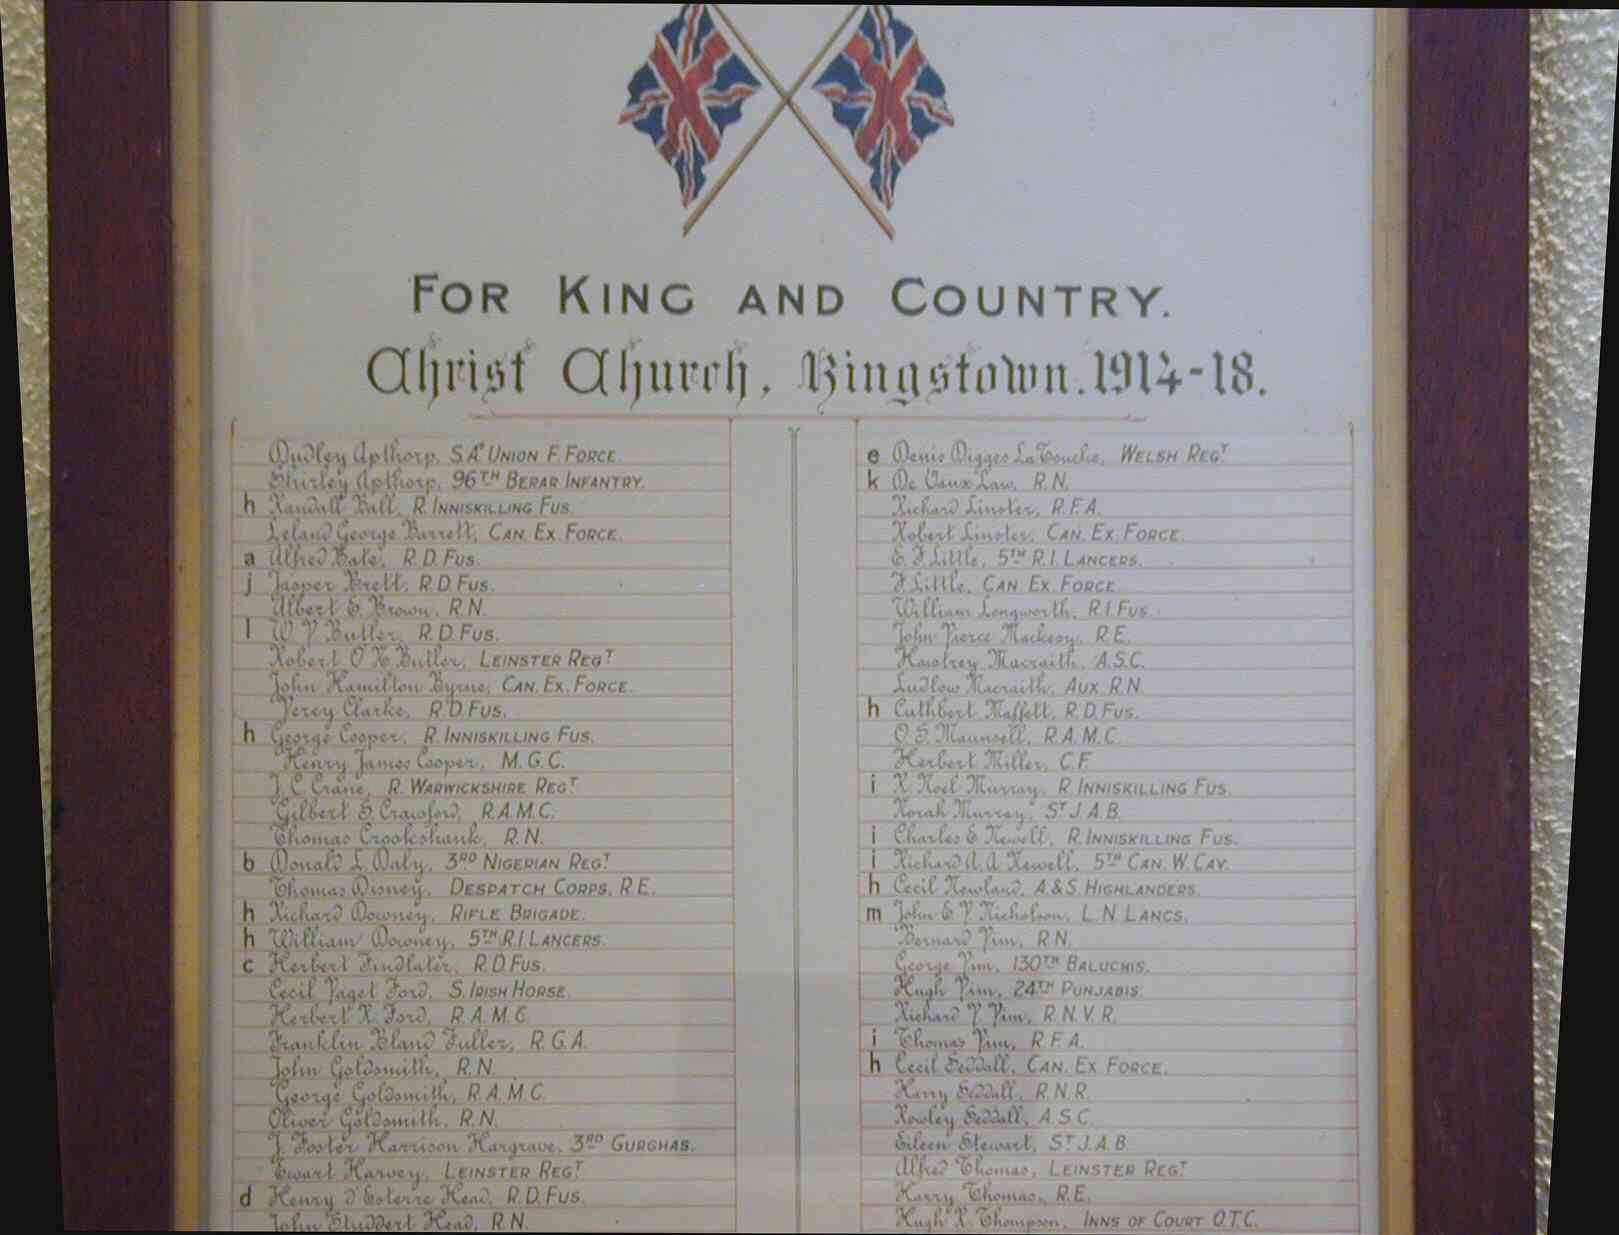 FOR KING AND COUNTRY.
Christ Church, Kingstown. 1914-18.
Dudley Apthorp, S. Aⁿ UNION F. FORCE.
Shirley Apthorp, 96TH BERAR INFANTRY.
h Randall Ball, R. INNISKILLING FUS.
Leland George Barrett, CAN. EX. FORCE.
a Alfred Bate, R.D. FUS.
j Jasper Brett, R.D. FUS.
Albert E. Brown, R.N.
l W. P. Butler, R.D. FUS.
Robert O'H. Butler, LEINSTER REGT
John Hamilton Byrne, CAN. EX. FORCE.
Percy Clarke, R.D. FUS.
h George Cooper, R. INNISKILLING FUS.
Henry James Cooper, M.G.C.
J. C. Crane, R. WARWICKSHIRE REGT
Gilbert S. Crawford, R.A.M.C.
Thomas Crookshank, R.N.
b Donald L. Daly, 3RD NIGERIAN REGT
Thomas Disney, DESPATCH CORPS, R.E.
h Richard Downey, RIFLE BRIGADE.
h William Downey, 5TH R.I. LANCERS.
c Herbert Findlater, R.D. FUS.
Cecil Paget Ford, S. IRISH HORSE.
Herbert R. Ford, R.A.M.C.
Franklin Bland Fuller, R.G.A.
John Goldsmith, R.N.
George Goldsmith, R.A.M.C.
Oliver Goldsmith, R.N.
J. Foster Harrison Hargrave, 3RD GURGHAS.
Ewart Harvey, LEINSTER REGT
d Henry d'Esterre Head, R.D. FUS.
John Studdert Head, R.N.
e Denis Digges LaTouche, WELSH REGT
k De Vaux Law, R.N.
Richard Linster, R.F.A.
Robert Linster, CAN. EX. FORCE.
E. F. Little, 5TH R.I. LANCERS.
F. Little, CAN. EX. FORCE.
William Longworth, R.I. FUS.
John Pierce Mackesy, R.E.
Hawtrey Macraith, A.S.C.
Ludlow Macraith, AUX. R.N.
h Cuthbert Maffett, R.D. FUS.
O. S. Maunsell, R.A.M.C.
Herbert Miller, C.F.
i R. Noel Murray, R. INNISKILLING FUS.
Norah Murray, ST J.A.B.
i Charles E. Newell, R. INNISKILLING FUS.
i Richard A. A. Newell, 5TH CAN. W. CAV.
h Cecil Newland, A. & S. HIGHLANDERS.
m John E. P. Nicholson, L.N. LANCS.
Bernard Pim, R.N.
George Pim, 130TH BALUCHIS.
Hugh Pim, 24TH PUNJABIS.
Richard P. Pim, R.N.V.R.
i Thomas Pim, R.F.A.
h Cecil Seddall, CAN. EX. FORCE.
Harry Seddall, R.N.R.
Rowley Seddall, A.S.C.
Eileen Stewart, ST J.A.B.
Alfred Thomas, LEINSTER REGT
Harry Thomas, R.E.
Hugh R. Thompson, INNS OF COURT O.T.C.